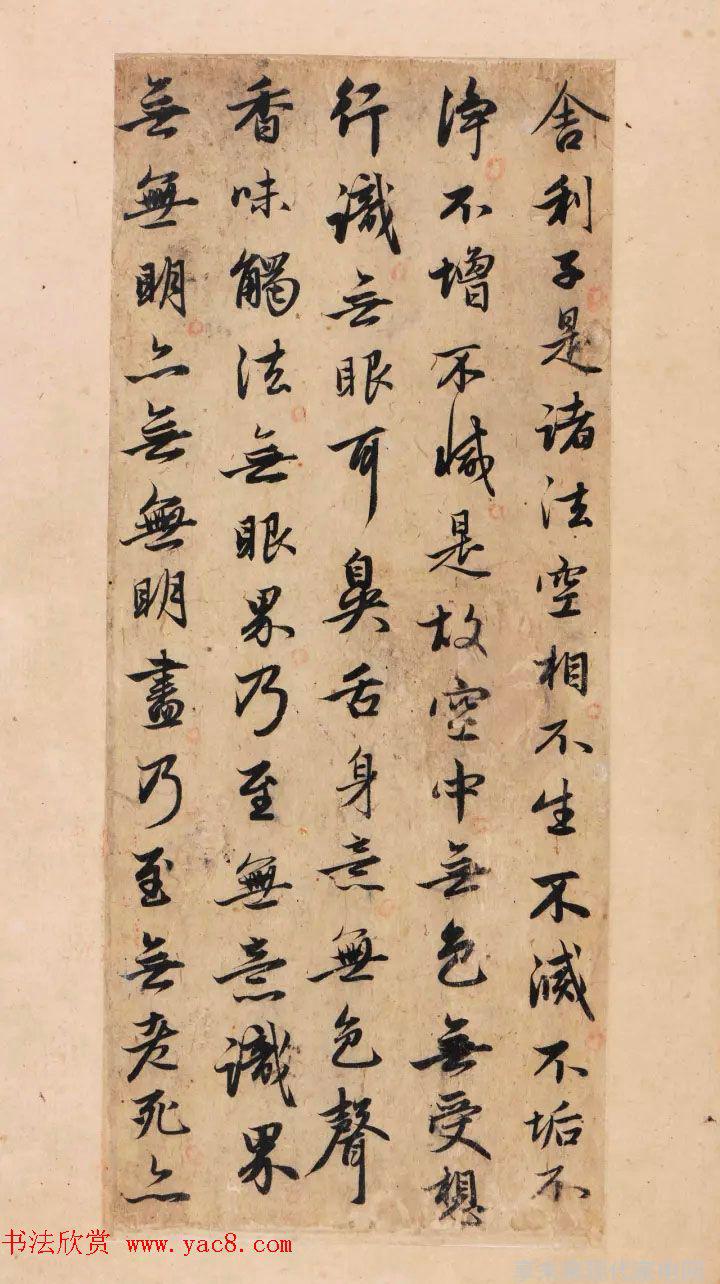 舍利子是诸法空相不生不滅不垢不
净不增不減是故空中無色無受想
行識無眼耳鼻舌身意無色聲
香味觸法無眼界乃至無意識界
無無明亦無無明盡乃至無老死亦
书法欣赏 www.yac8.com